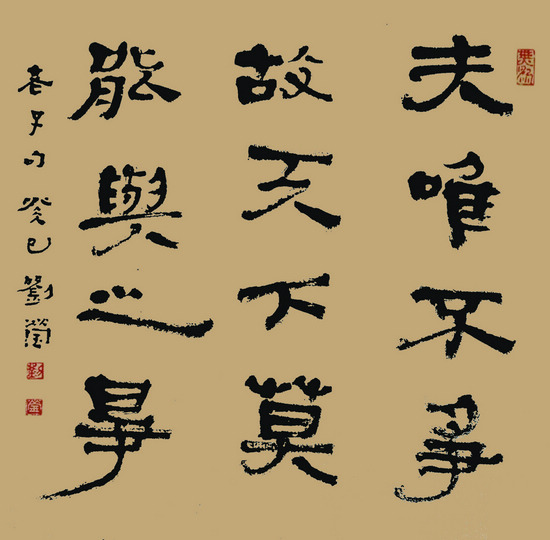 夫唯不爭
故天下莫
能與之爭
老子句癸巳劉瑩